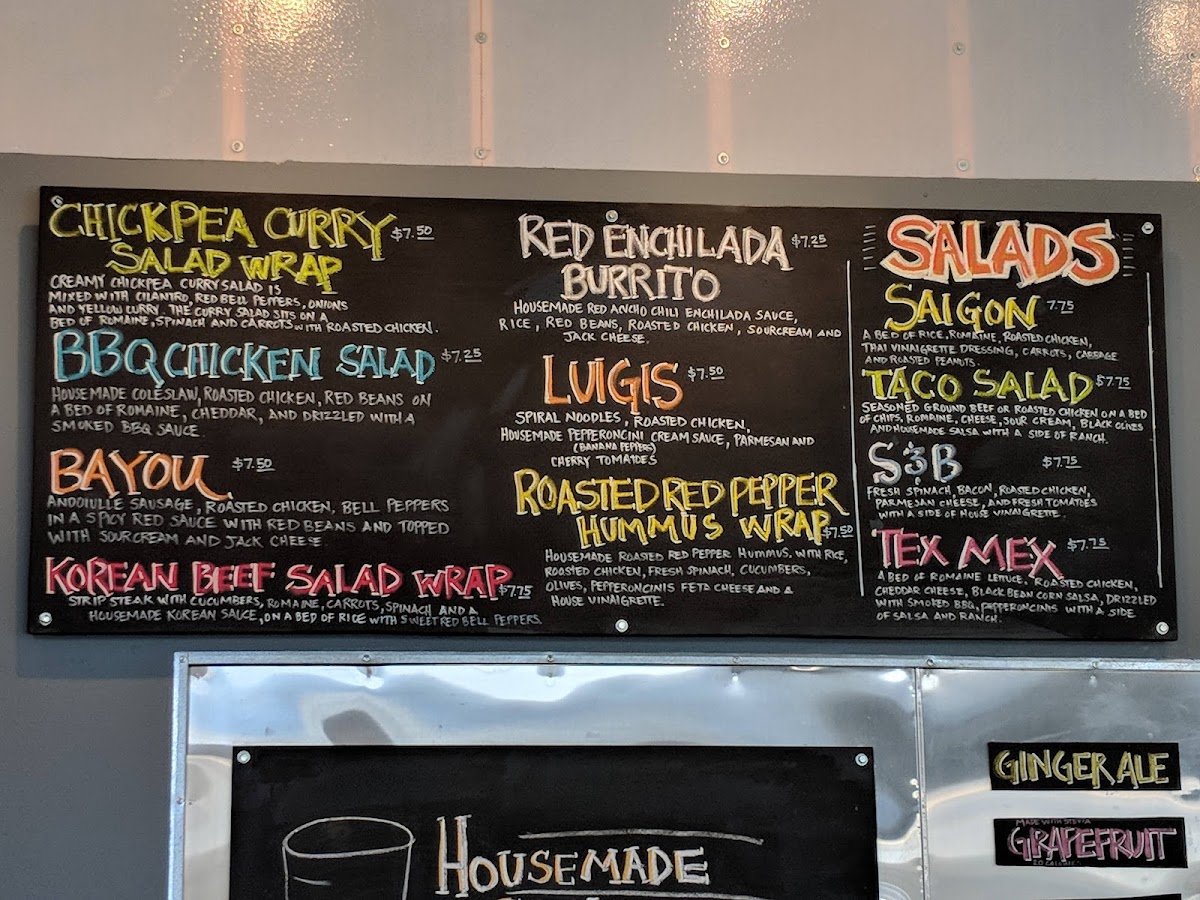 CHICKPEA CURRY $7.50
SALAD WRAP
CREAMY CHICKPEA CURRY SALAD IS
MIXED WITH CILANTRO, RED BELL PEPPERS, ONIONS
AND YELLOW CURRY. THE CURRY SALAD SITS ON A
BED OF ROMAINE, SPINACH AND CARROTS WITH ROASTED CHICKEN.
BBQ CHICKEN SALAD $7.25
HOUSEMADE COLESLAW, ROASTED CHICKEN, RED BEANS ON
A BED OF ROMAINE, CHEDDAR, AND DRIZZLED WITH A
SMOKED BBQ SAUCE.
BAYOU $7.50
ANDOIULLE SAUSAGE, ROASTED CHICKEN, BELL PEPPERS
IN A SPICY RED SAUCE WITH RED BEANS AND TOPPED
WITH SOURCREAM AND JACK CHEESE.
KOREAN BEEF SALAD WRAP $7.75
STRIP STEAK WITH CUCUMBERS, ROMAINE, CARROTS, SPINACH AND A
HOUSEMADE KOREAN SAUCE, ON A BED OF RICE WITH SWEET RED BELL PEPPERS.
RED ENCHILADA $7.25
BURRITO
HOUSEMADE RED ANCHO CHILI ENCHILADA SAUCE,
RICE, RED BEANS, ROASTED CHICKEN, SOURCREAM AND
JACK CHEESE.
LUIGIS $7.50
SPIRAL NOODLES, ROASTED CHICKEN,
HOUSEMADE PEPPERONCINI CREAM SAUCE, PARMESAN AND
(BANANA PEPPERS)
CHERRY TOMATOES
ROASTED RED PEPPER
HUMMUS WRAP $7.50
HOUSEMADE ROASTED RED PEPPER HUMMUS. WITH RICE,
ROOSTED CHICKEN, FRESH SPINACH, CUCUMBERS,
OLIVES, PEPPERONCINIS FETA CHEESE AND A
HOUSE VINAIGRETTE.
SALADS
SAIGON 7.75
A BED OF RICE, ROMAINE, ROASTED CHICKEN,
THAI VINAIGRETTE DRESSING, CARROTS, CABBAGE
AND ROASTED PEANUTS.
TACO SALAD $7.75
SEASONED GROUND BEEF OR ROASTED CHICKEN ON A BED
OF CHIPS, ROMAINE, CHEESE, SOUR CREAM, BLACK OLIVES
AND HOUSEMADE SALSA WITH A SIDE OF RANCH.
S&B $7.75
FRESH SPINACH, BACON, ROASTED CHICKEN,
PARMESAN CHEESE, AND FRESH TOMATOES
WITH A SIDE OF HOUSE VINAIGRETTE.
TEX MEX $7.75
A BED OF ROMAINE LETTUCE, ROASTED CHICKEN,
CHEDDAR CHEESE, BLACK BEAN CORN SALSA, DRIZZLED
WITH SMOKED BBQ, PEPPERONCINIS WITH A SIDE
OF SALSA AND RANCH.
HOUSEMADE
GINGER ALE
MADE WITH STEVIA
GRAPEFRUIT